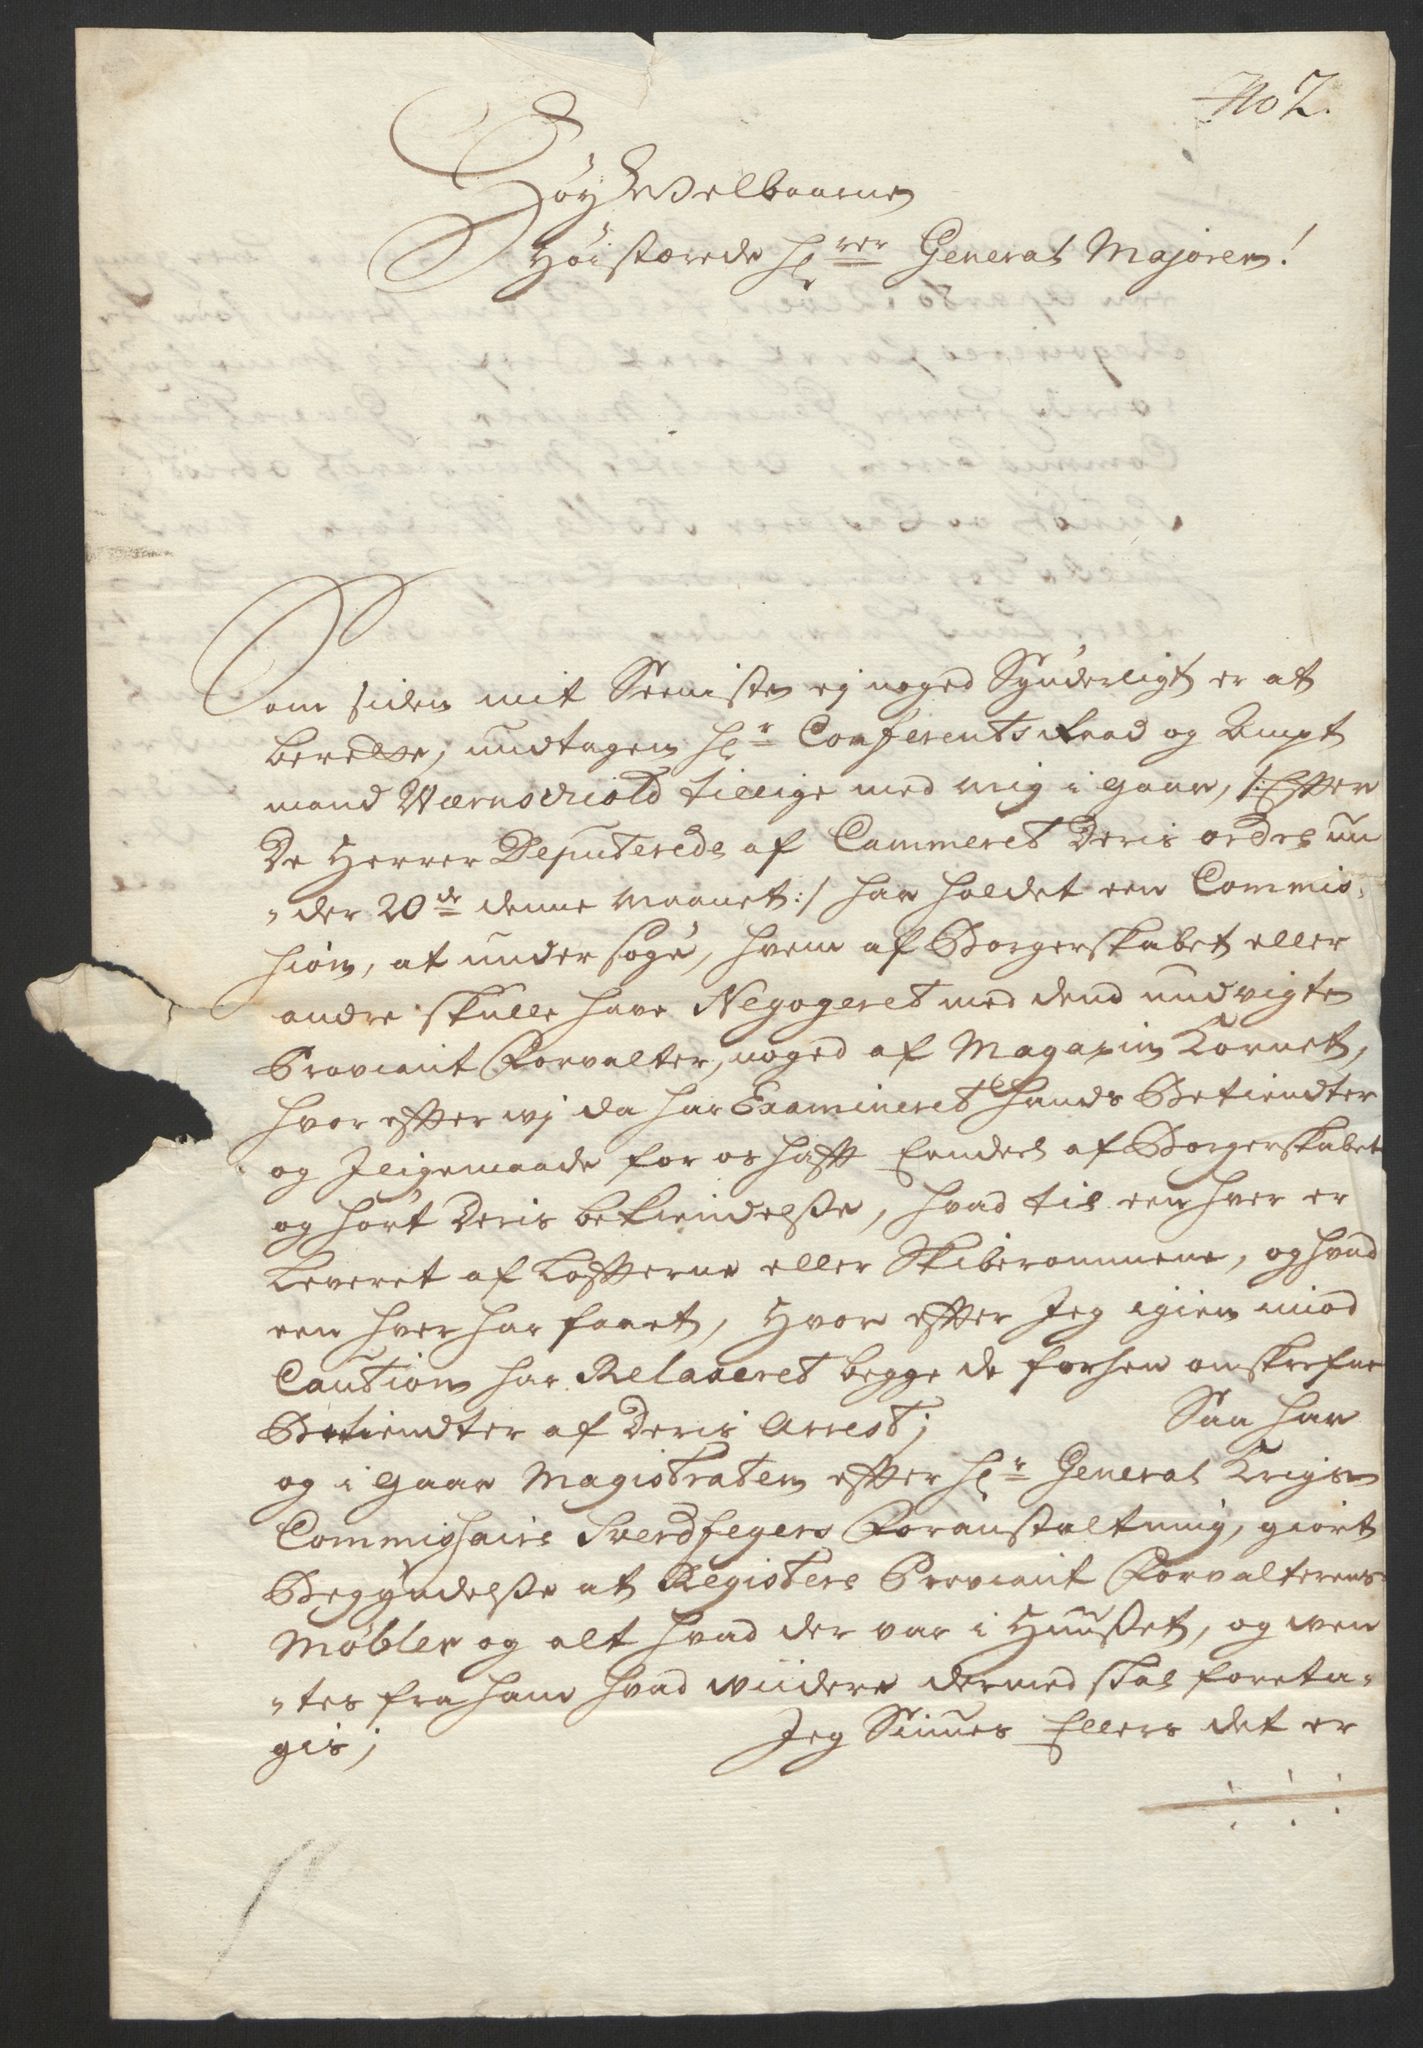 No 7.
Høy Velbaarne
Høistærede Hr rer General Majoren!
Som siden mit Seeniste ej noged Synderligt er at
berette, undtagen Hr Conferents Raad og Ampt
mand Wærnschiold tillige med mig i gaar, /: Efter
De Herrer Deputerede af Cammeret Deris ordre un
"der 20de denne Maanet :/ har holdet een Commis-
hion, at undersøge, hvem af Borgerskabet eller
andre skulle have Negogeret med dend undvigte
Proviant Forvalter, noged af Magaxin Kornet,
hvor efter wj da har Examineret hands Betiendter
og Jligemaade for os hafft Eendeel af Borgerskabet
og hørt Deris bekiendelße, hvad til een hver er
Leveret af Loffterne eller Skiberommene, og hvad
een hver har faaet, Hvor efter Jeg igien mod
Caution har Relaxeret begge de forhen omskrefne
Betiendter af Deris Arrest; Saa har
og i gaar Magistraten efter Hr General Krigs
Commishairs Sverdfegers Foranstaltning, giort
Begyndelße at Registere Proviant Forvalterens
Møbler og alt hvad der var i Huußet, og wen
"tes fra ham hvad widere dermed skal foreta-
gis; Jeg Siunes Ellers det er